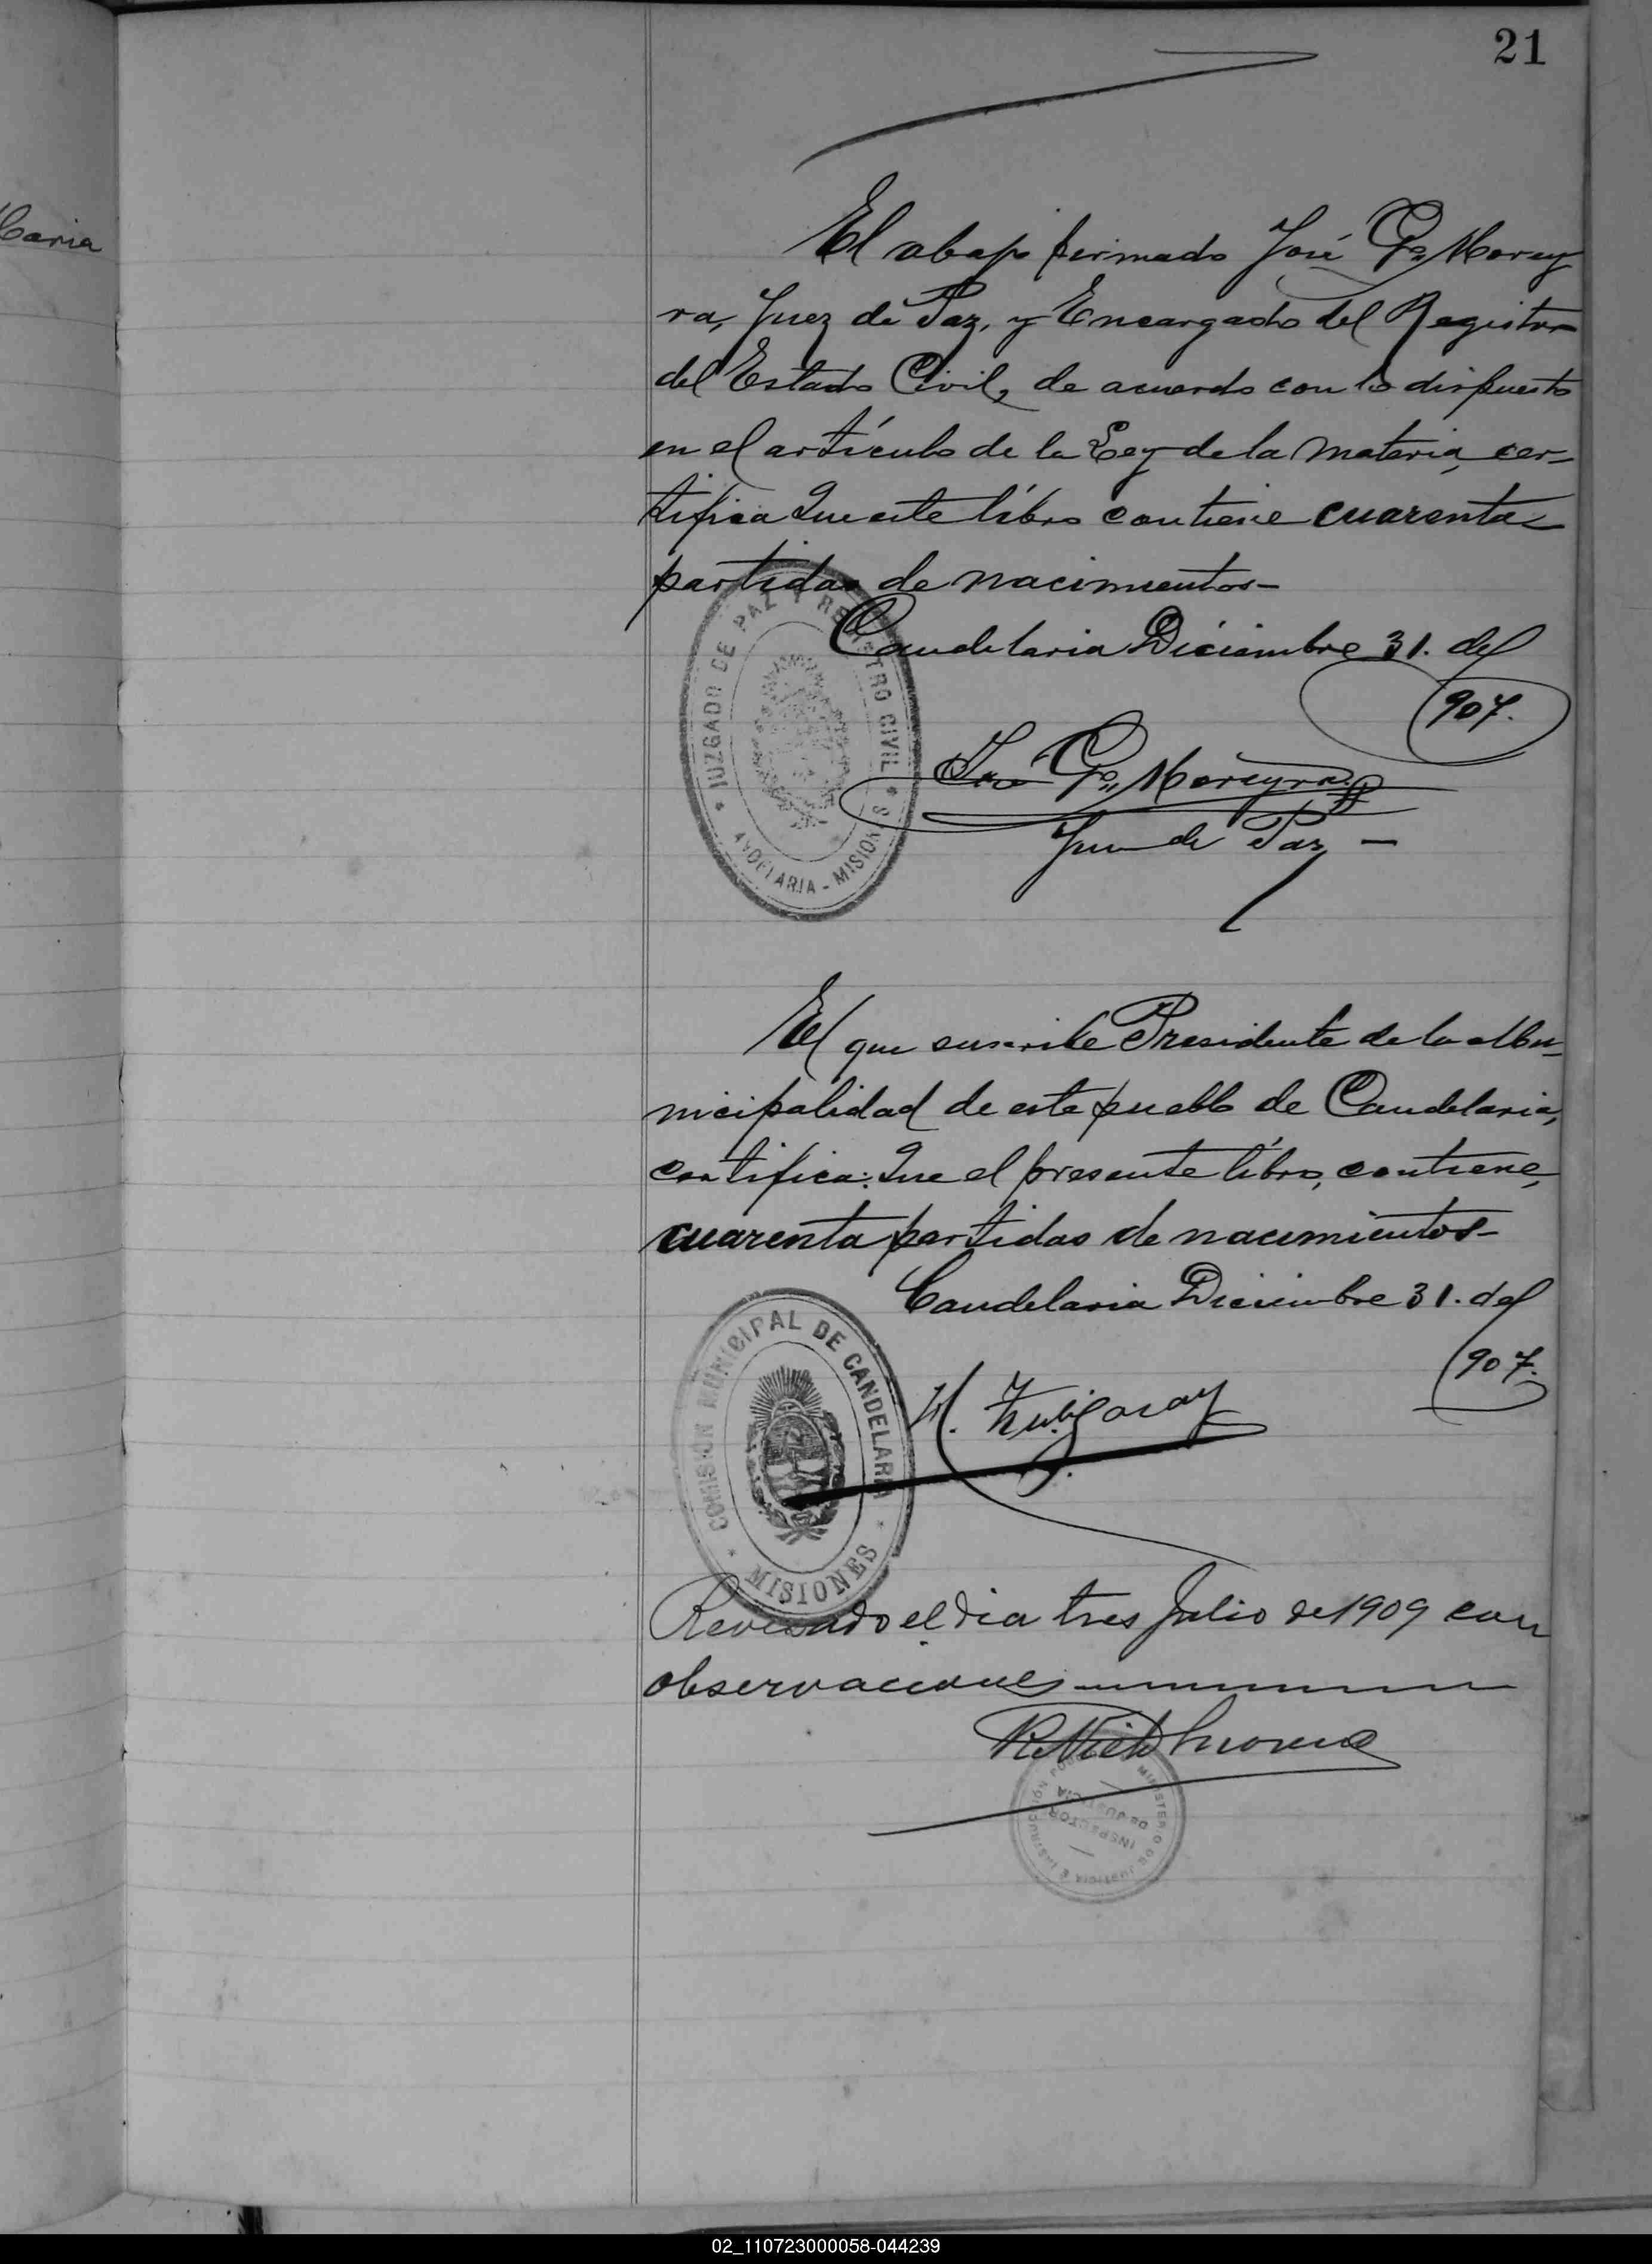 21
El abajo firmado José Gº. Morey
ra, Juez de Paz, y Encargado del Registro
del Estado Civil, de acuerdo con lo dispuesto
en el artículo de la Ley de la materia, cer-
tifica Que este libro contiene cuarenta
partidas de nacimientos-
Candelaria Diciembre 31. del
907.
José Gº. Moreyra
Juez de Paz -
JUZGADO DE PAZ Y REGISTRO CIVIL
ANDELARIA - MISION S
El que suscribe Presidente de la Mu-
nicipalidad de este pueblo de Candelaria,
certifica: Que el presente libro, contiene,
cuarenta partidas de nacimientos-
Candelaria Diciembre 31. del
907.
COMISION MUNICIPAL DE CANDELARIA
MISIONES
H. Zubigaray
Revisado el dia tres Julio de 1909 con
observaciones
R. Nieto Moreno
MINISTERIO DE JUSTICIA É INSTRUCCIÓN
INSPECTOR
DE JUSTICIA
02_110723000058-044239